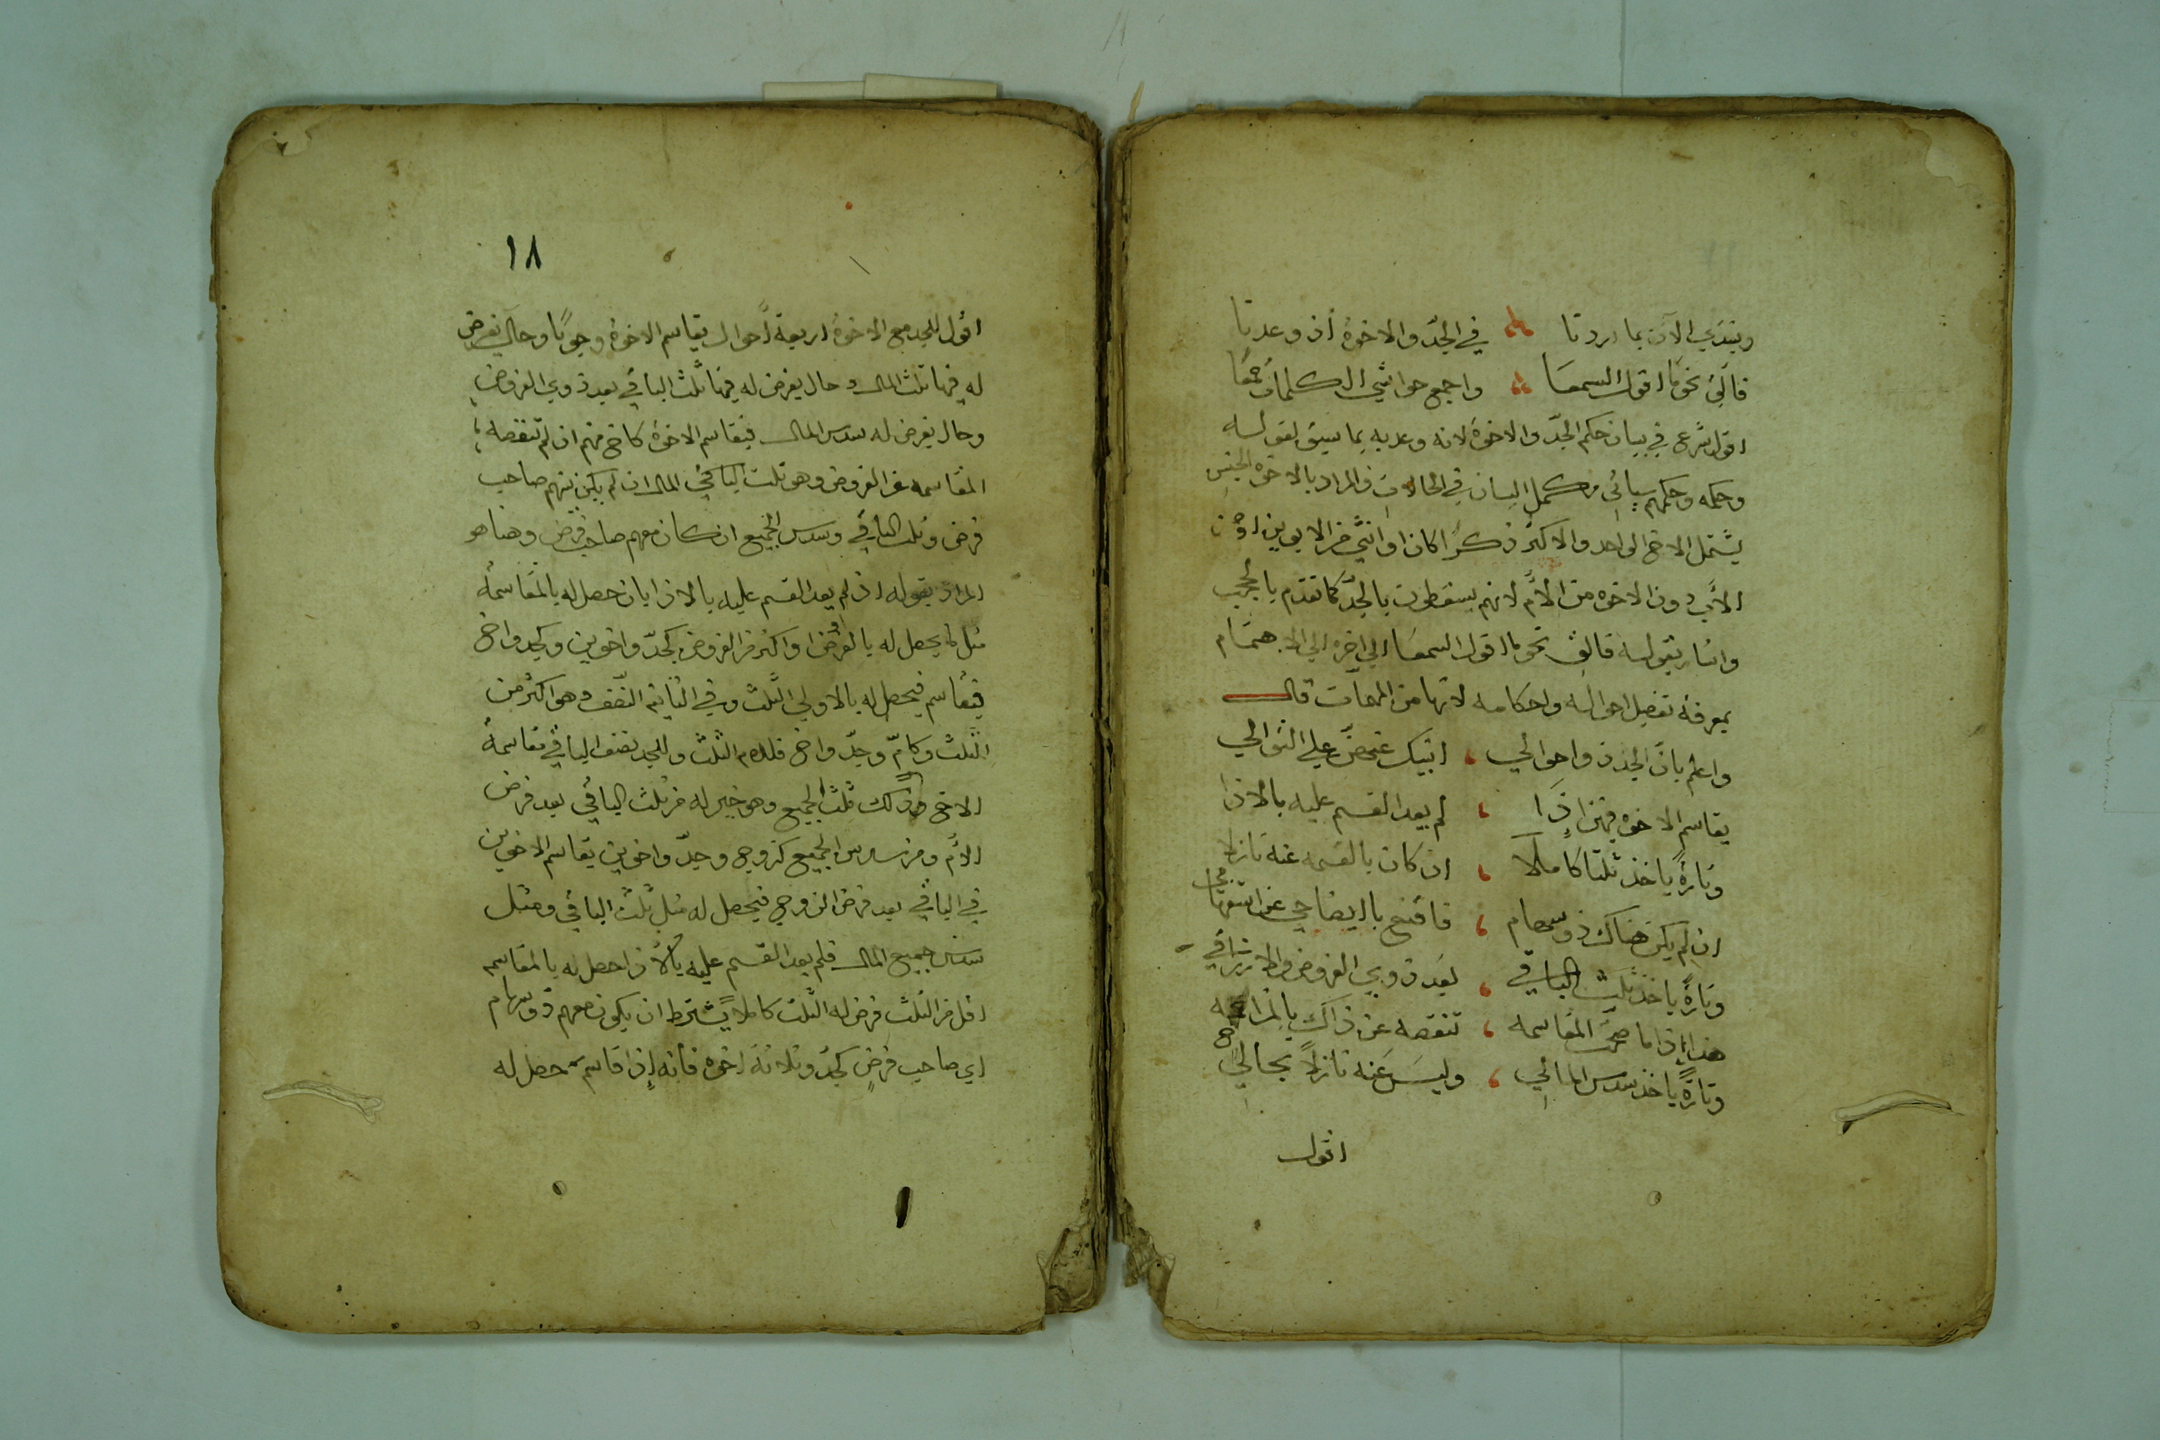 ونبتدي الآن بما اردنا في الجدّ والاخوة اذ وعدنا
فالق نحو ما اقول السمعا واجمع حواشي الكلمات جمعا
اقول شرع في بيان حكم الجدّ والاخوة لانه وعد به بما سبق لقوله
وحكمه وحكمهم سياتي مكمل البيان في الحالات والمراد بالاخوة الجنس
يشتمل الاخ الواحد والاكثر ذكرا كان او انثى من الابوين او من
الاب دون الاخوه من الام لانهم يسقطون بالجدّ كما تقدم بالحجب
واشار بقوله فالق نحو ما اقول السمعا الى اخره الى الاهتمام
بمعرفة تفصيل احواله واحكامه لانها من المهمات قال
واعلم بانّ الجد ذو احوالي انبيك عنهنّ على التوالي
يقاسم الاخوه فيهن اذا لم يعد القسم عليه بالاذا
وتارةً ياخذ ثلثا كاملا ان كان بالقسمه عنه نازلا
ان لم يكن هناك ذو سهام فاقنع بايضاحي عن استفهام
وتارةً ياخذ ثلث الباقي بعد ذوي الفروض والارزاقي
هذا اذا ما صحّت المقاسمه تنقصه عن ذاك بالمزاحمه
وتارةً ياخذ سدس المالي وليسَ عَنه نازلاً بحالي
اقول
١٨
اقول للجد مع الاخوة اربعة أحوال يقاسم الاخوة وجوبًا وحال يفرض
له فيها ثلث المال وحال يفرض له فيها ثلث الباقي بعد ذوي الفروض
وحال يفرض له سدس المال فيقاسم الاخوة كاخ منهم ان لم تنقصه
المقاسمه عن الفروض وهو ثلث المال ان لم يكن منهم صاحب
فرض وثلث الباقي وسدس الجميع ان كان معهم صاحب فرض وهذا هو
المراد بقوله اذ لم يعد القسم عليه بالاذا بان حصل له بالمقاسمة
مثل ما يحصل له بالفرض او اكثر من الفروض كجدّ واخوين وكجد واخ
فيقاسم فيحصل له بالاولى الثلث وفي الثانيه النّصف وهو اكثر من
الثلث وكامّ وجدّ واخ فللام الثلث وللجد نصف الباقي مقاسمة
الاخ وذلك ثلث الجميع وهو خير له من ثلث الباقي بعد فرض
الام ومن سدس الجميع كزوج وجدّ واخوين يقاسم الاخوين
في الباقي بعد فرض الزوج فيحصل له مثل ثلث الباقي ومثل
سدس جميع المال فلم يعد القسم عليه بالاذا حصل له بالمقاسمه
اقل من الثلث فرض له الثلث كاملا يشترط ان يكون معهم ذو سهام
اي صاحب فرضٍ كجدّ وثلاثة اخوه فانه إذا قاسم حصل له